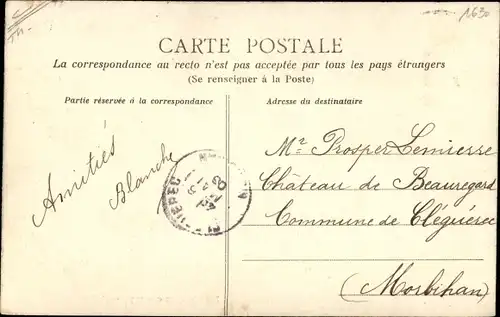 CARTE POSTALE
La correspondance au recto n'est pas acceptée par tous les pays étrangers
(Se renseigner à la Poste)
Partie réservée à la correspondance
Adresse du destinataire
Amitiés
Blanche
Mr Prosper Lemierre
Château de Beauregard
Commune de Cléguérec
(Morbihan)